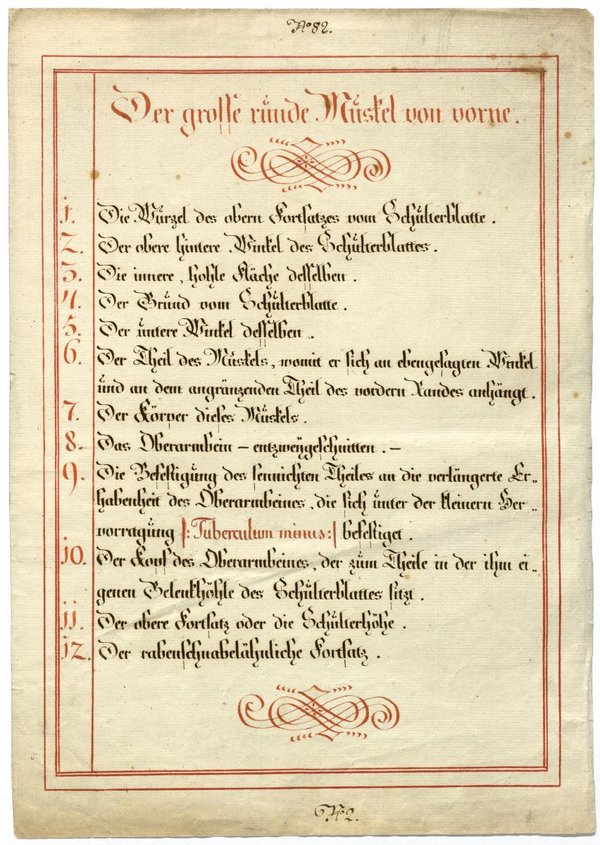 No 82.
Der grosse runde Muskel von vorne.
1. Die Wurzel des obern Fortsatzes vom Schulterblatte.
2. Der obere hintere Winkel des Schulterblattes.
3. Die innere, hohle Fläche desselben.
4. Der Grund vom Schulterblatte.
5. Der untere Winkel desselben.
6. Der Theil des Muskels, womit er sich an ebengesagten Winkel
und an dem angränzenden Theil des vordern Randes anhängt.
7. Der Körper dieses Muskels.
8. Das Oberarmbein – entzweygeschnitten. –
9. Die Befestigung des sennichten Theiles an die verlängerte Er-
habenheit des Oberarmbeines, die sich unter der kleinern Her-
vorragung |: Tuberculum minus :| befestiget.
10. Der Kopf des Oberarmbeines, der zum Theile in der ihm ei-
genen Gelenkhöhle des Schulterblattes sitzt.
11. Der obere Fortsatz oder die Schulterhöhe.
12. Der rabenschnabelähnliche Fortsatz.
No 2.